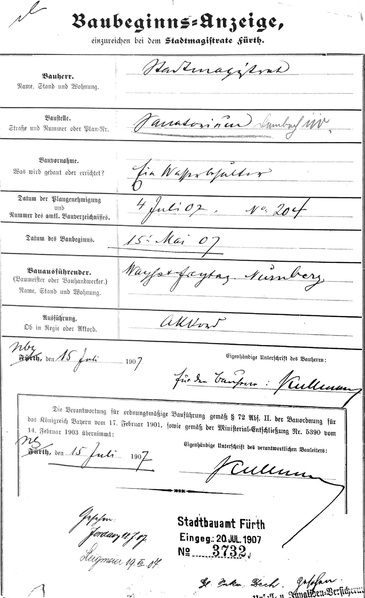 Baubeginns-Anzeige,
einzureichen bei dem Stadtmagistrate Fürth.
Bauherr.
Name, Stand und Wohnung.
Stadtmagistrat
Baustelle.
Straße und Nummer oder Plan-Nr.
Sanatorium
Bauvornahme.
Was wird gebaut oder errichtet?
Ein Wasserbehälter
Datum der Plangenehmigung
und
Nummer des amtl. Bauverzeichnisses.
4 Juli 07. No. 204
Datum des Baubeginns.
15. Mai 07
Bauausführender.
(Baumeister oder Bauhandwerker.)
Name, Stand und Wohnung.
Wayss & Freytag Nürnberg
Ausführung.
Ob in Regie oder Akkord.
Akkord
Nbg
Fürth, den 15 Juli 1907
Eigenhändige Unterschrift des Bauherrn:
für den Bauherrn: Kullmann
Die Verantwortung für ordnungsmäßige Bauführung gemäß § 72 Abs. II. der Bauordnung für
das Königreich Bayern vom 17. Februar 1901, sowie gemäß der Ministerial-Entschließung Nr. 5390 vom
14. Februar 1903 übernimmt:
Nbg
Fürth, den 15 Juli 1907
Eigenhändige Unterschrift des verantwortlichen Bauleiters:
Kullmann
Gesehen
Stadtbauamt Fürth
Eingeg. 20. JUL. 1907
No 3732
gesehen